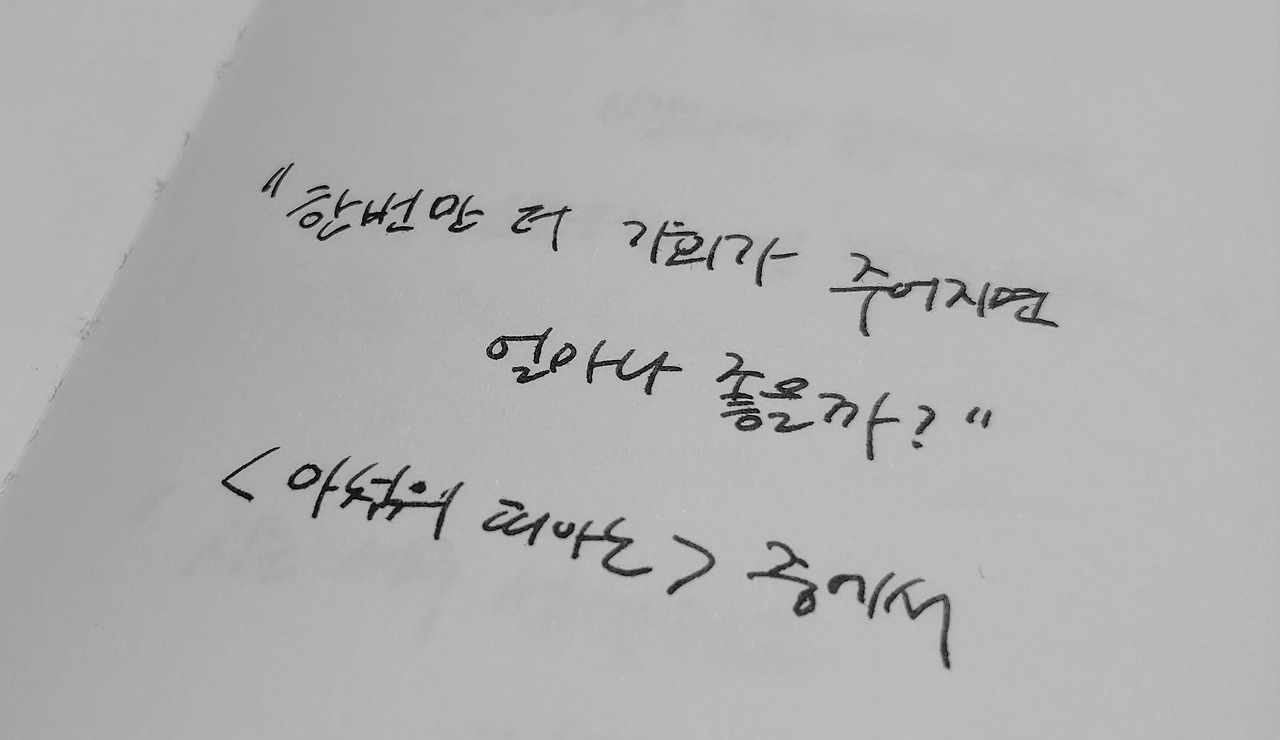 "한번만 더 기회가 주어지면
얼마나 좋을까?"
<아침의 피아노> 중에서